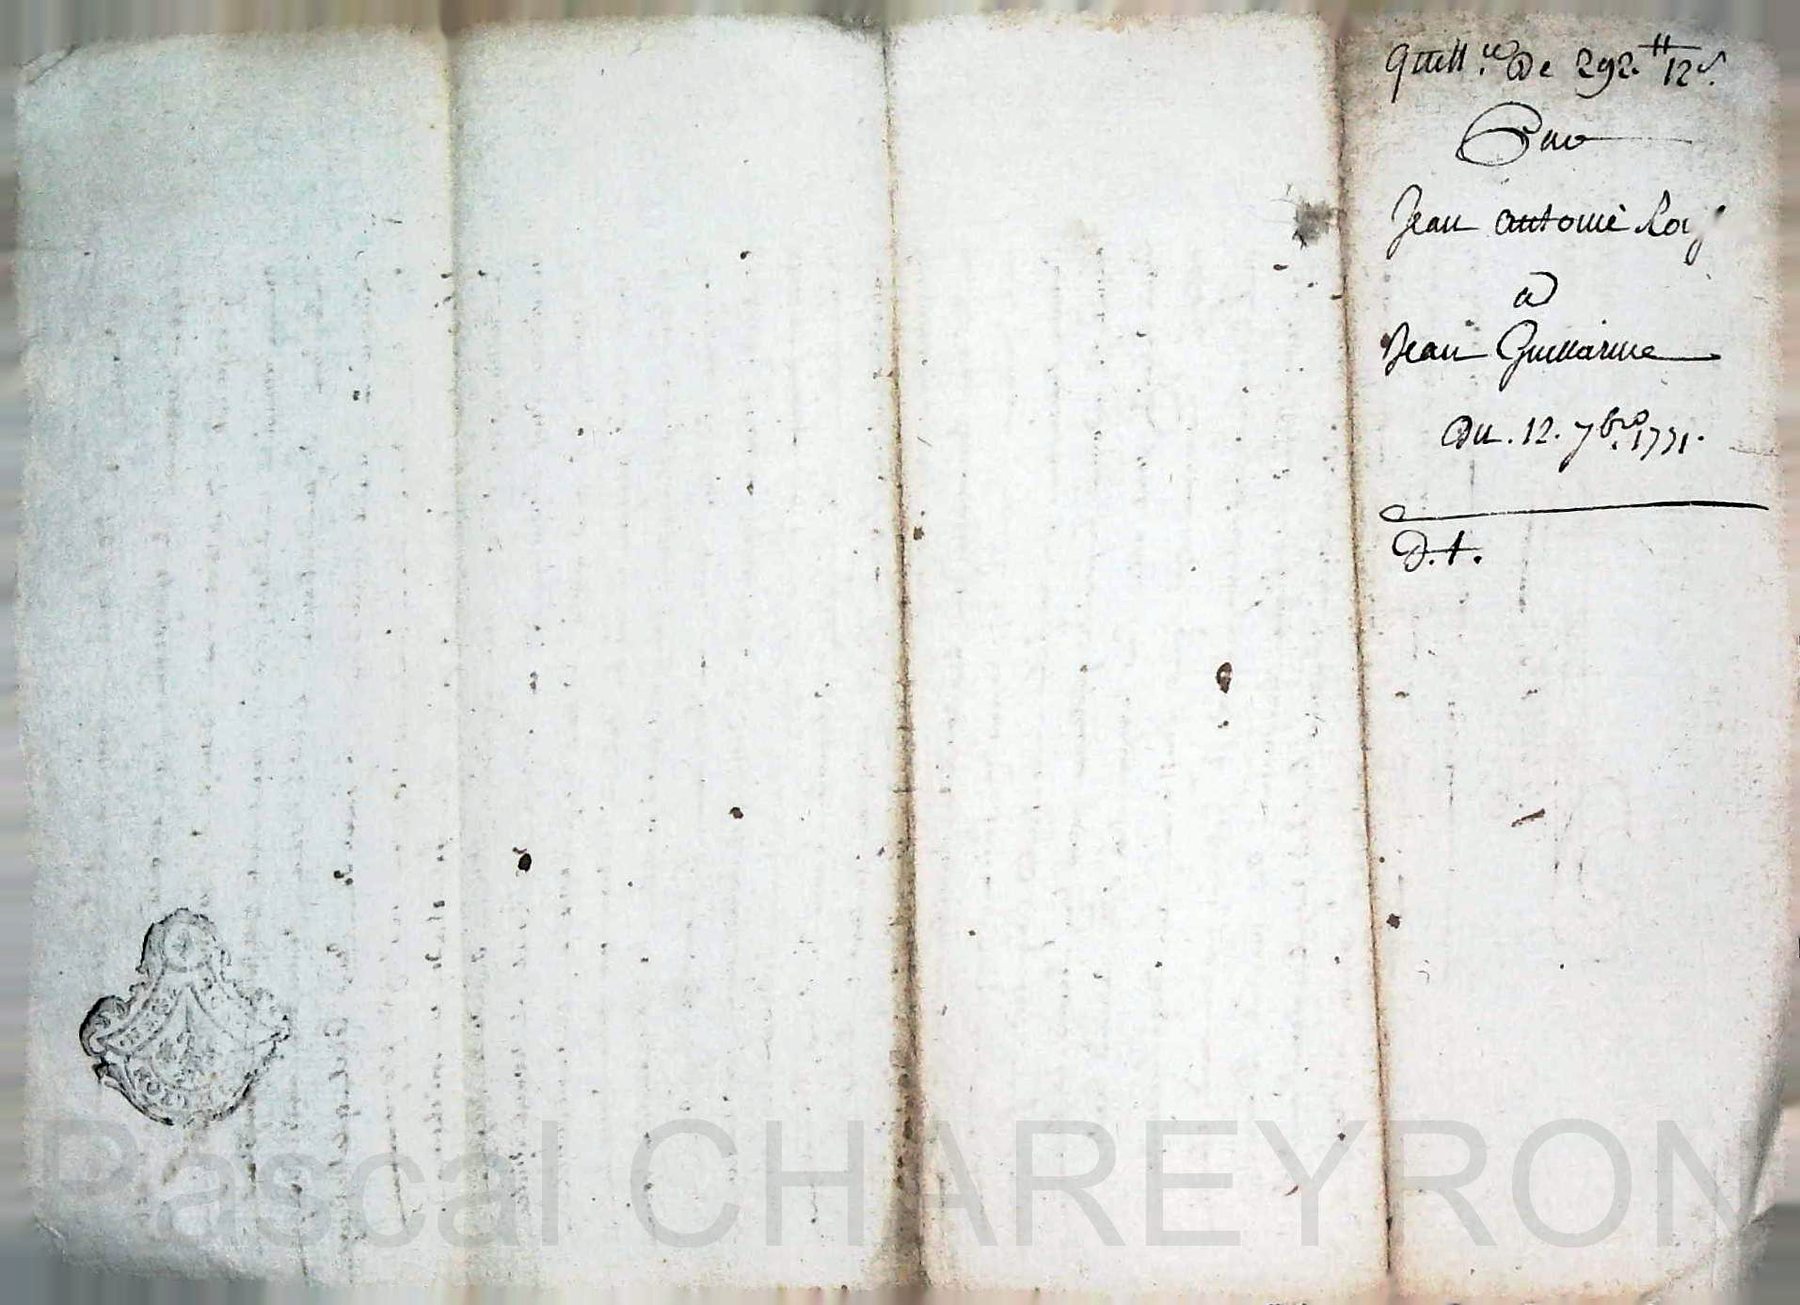 quitt.ce De 292.tt 12 s.
Par
Jean antoine Roy
a
Jean Guillarme
Du. 12. 7bre. 1771.
D. t.
Pascal CHAREYRON